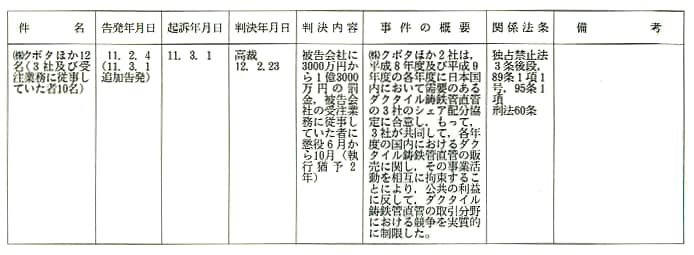 件　　名
告発年月日
起訴年月日
判決年月日
判決内容
事件の概要
関係法条
備　　　考
㈱クボタほか12
名(3社及び受
注業務に従事し
ていた者10名)
11. 2. 4
(11. 3. 1
追加告発)
11. 3. 1
高裁
12. 2.23
被告会社に
3000万円か
ら1億3000
万円の罰
金，被告会
社の受注業
務に従事し
ていた者に
懲役6月か
ら10月（執
行猶予2
年）
㈱クボタほか2社は，
平成8年度及び平成9
年度の各年度に日本国
内において需要のある
ダクタイル鋳鉄管直管
の3社のシェア配分協
定に合意し，もって，
3社が共同して，各年
度の国内におけるダク
タイル鋳鉄管直管の販
売に関し，その事業活
動を相互に拘束するこ
とにより，公共の利益
に反して，ダクタイル
鋳鉄管直管の取引分野
における競争を実質的
に制限した。
独占禁止法
3条後段，
89条1項1
号，95条1
項
刑法60条